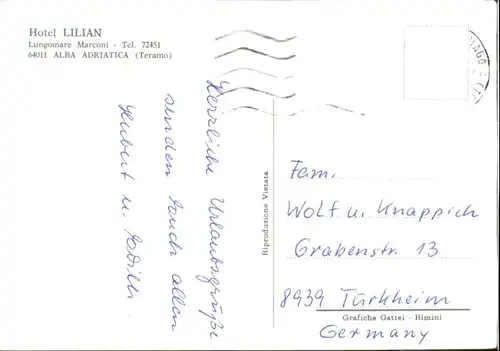 Hotel LILIAN
Lungomare Marconi - Tel. 72451
64011 ALBA ADRIATICA (Teramo)
Herrliche Urlaubsgrüße
senden Euch allen
Hubert u. Edith.
Riproduzione Vietata
Fam.
Wolf u. Knappich
Grabenstr. 13
8939 Türkheim
Grafiche Gattei - Rimini
Germany